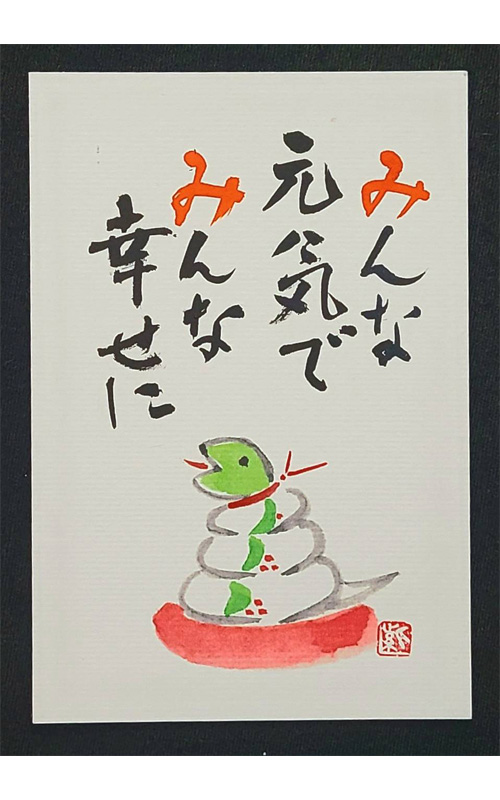 みんな
元気で
みんな
幸せに